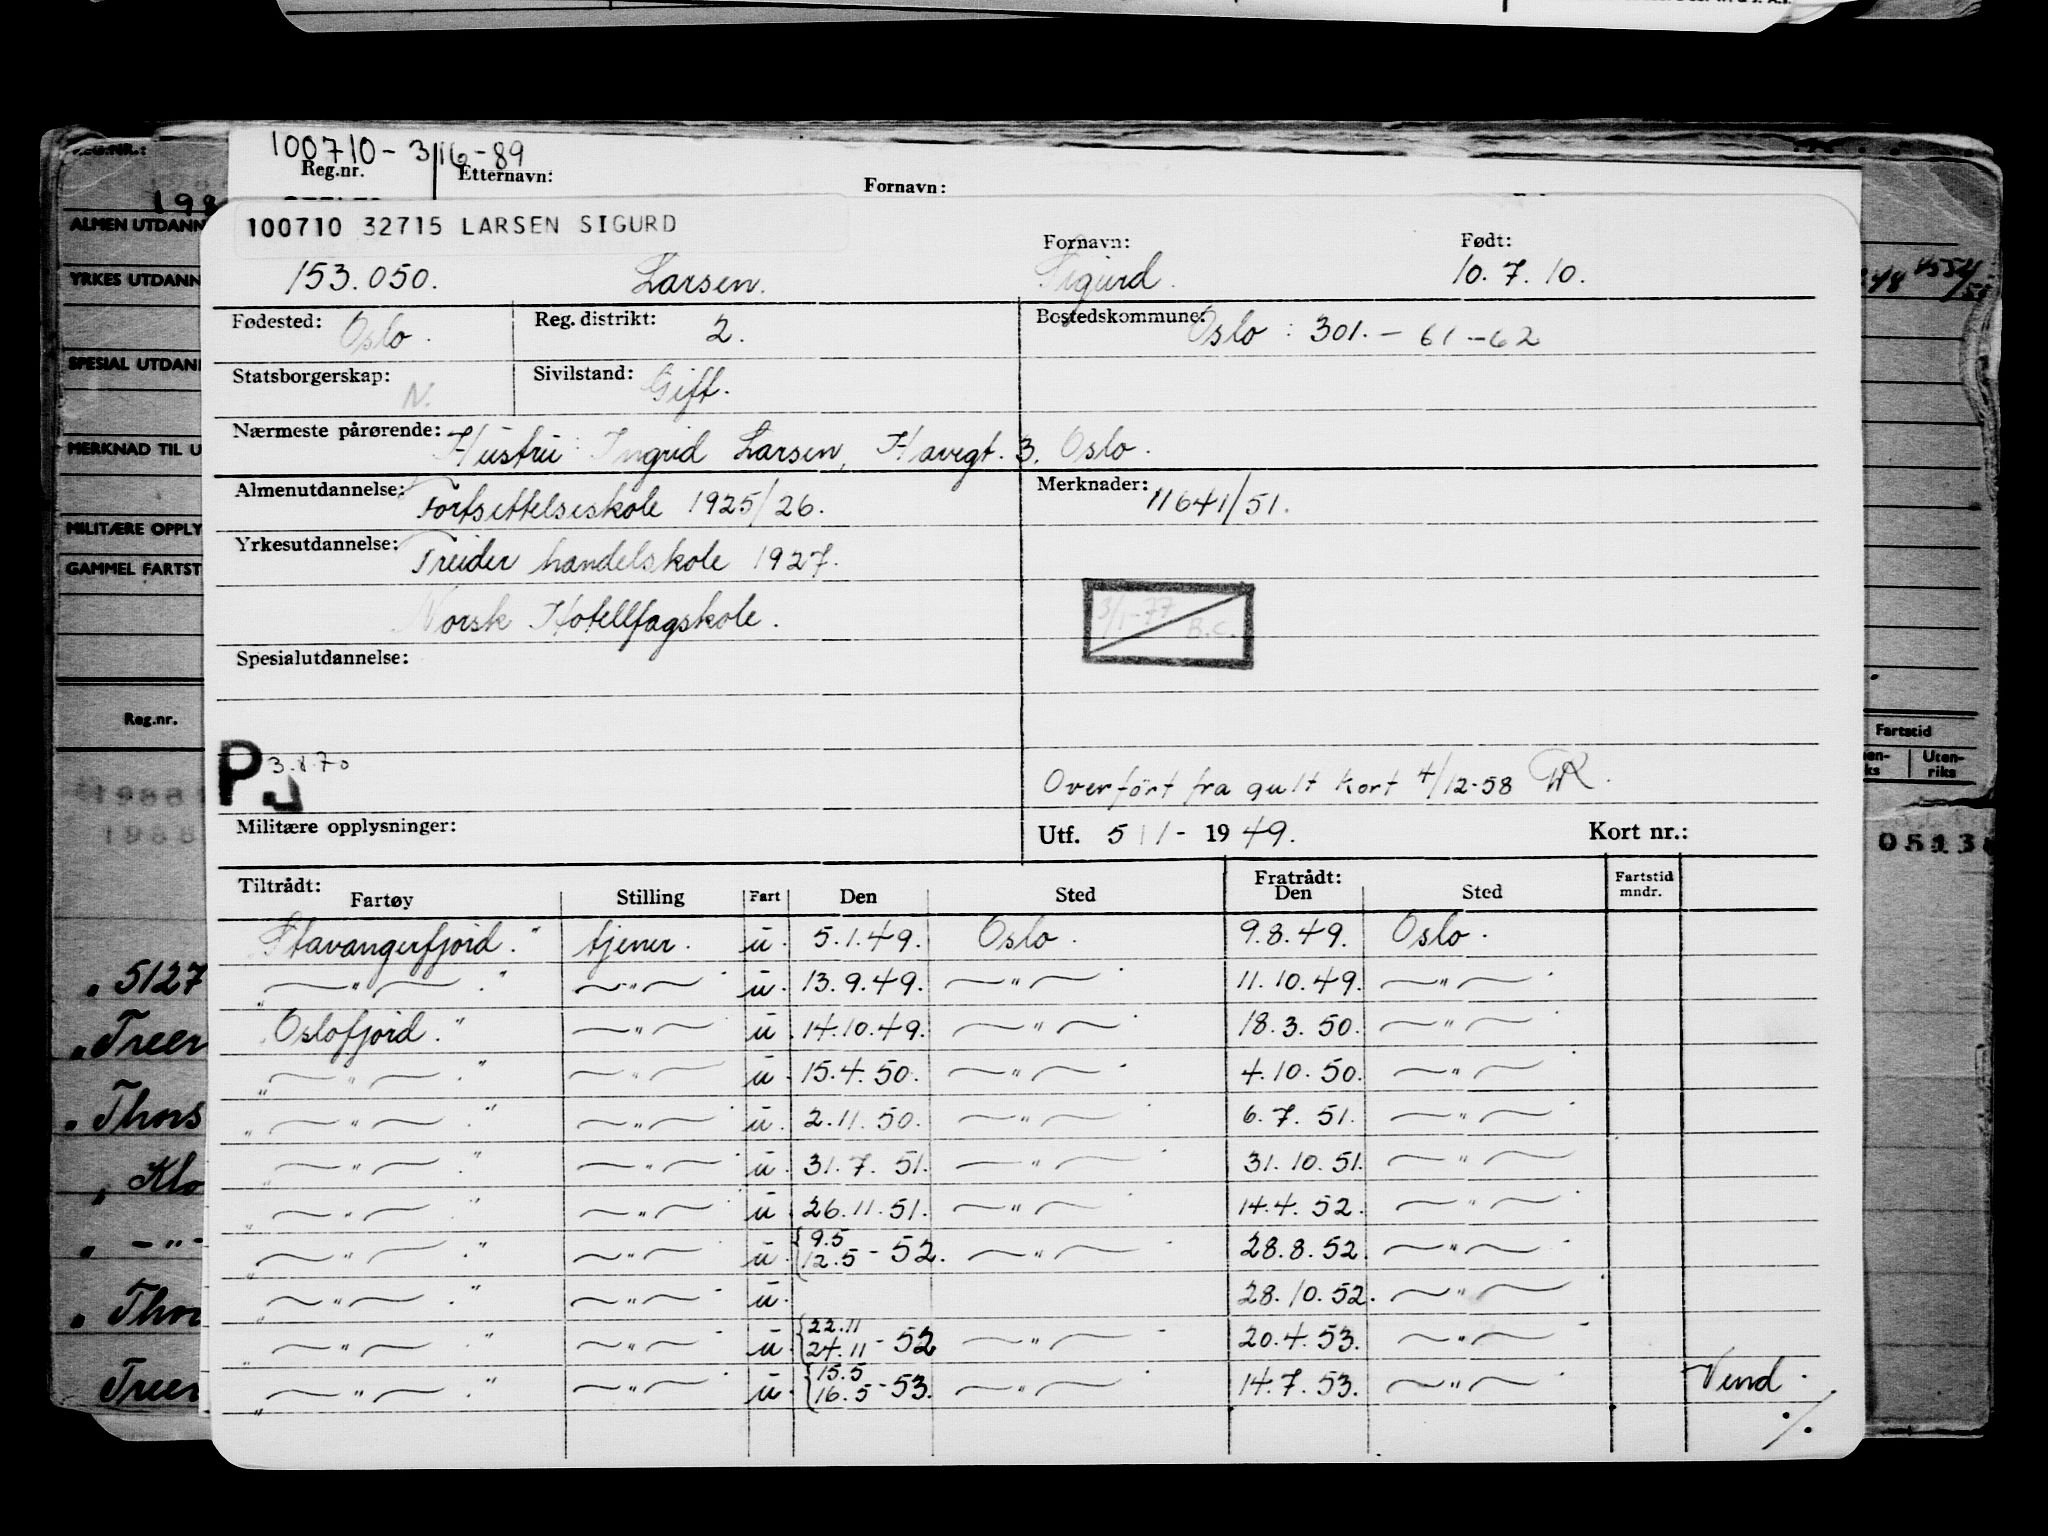 100710-3/16-89
Reg.nr. Etternavn: Fornavn:
100710 32715 LARSEN SIGURD
Fornavn: Født:
153.050. Larsen. Sigurd. 10.7.10.
Fødested: Oslo. Reg. distrikt: 2. Bostedskommune: Oslo : 301. - 61 -62
Statsborgerskap: N. Sivilstand: Gift.
Nærmeste pårørende: Hustru: Ingrid Larsen, Havegt. 3. Oslo.
Almenutdannelse: Fortsettelseskole 1925/26. Merknader: 11641/51.
Yrkesutdannelse: Treider handelskole 1927.
Norsk Hotellfagskole.
3/1-77 B.C.
Spesialutdannelse:
P 3.8.70
Overført fra gult kort 4/12-58
Militære opplysninger: Utf. 5/1 - 1949. Kort nr.:
Tiltrådt: Fratrådt:
Fartøy Stilling Fart Den Sted Den Sted Fartstid mndr.
Stavangerfjord." tjener. u. 5.1.49. Oslo. 9.8.49. Oslo.
„ — " — ." — " — u. 13.9.49. — " — 11.10.49. — " —
„Oslofjord." — " — u. 14.10.49. — " — 18.3.50. — " —
„ — " — ." — " — u. 15.4.50. — " — 4.10.50. — " —
„ — " — ." — " — u. 2.11.50. — " — 6.7.51. — " —
„ — " — ." — " — u. 31.7.51. — " — 31.10.51. — " —
„ — " — ." — " — u. 26.11.51. — " — 14.4.52. — " —
„ — " — ." — " — u. {9.5 12.5 - 52. — " — 28.8.52. — " —
„ — " — ." — " — u. 28.10.52. — " —
„ — " — ." — " — u. {22.11 24.11 - 52 — " — 20.4.53. — " —
„ — " — ." — " — u. {15.5 16.5 - 53. — " — 14.7.53. — " — Vend.
./.
REG.NR.:
ALMEN UTDANN
YRKES UTDANN
SPESIAL UTDAN
MERKNAD TIL U
MILITÆRE OPPLY
GAMMEL FARTST
Reg.nr.
„ 5127
„ Treer
„ Thors
„ Klo
„ - " -
Treer
Fartstid
Uten-
riks